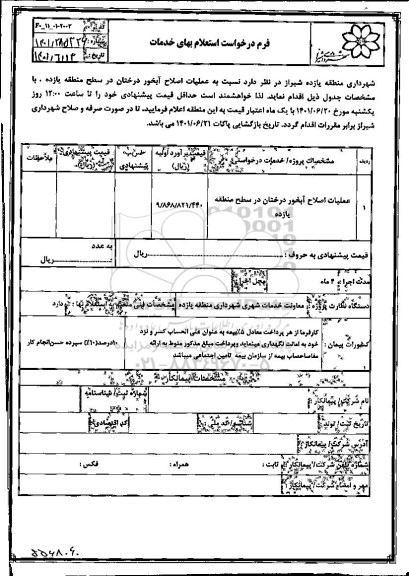 فرم درخواست استعلام بهای خدمات
شهرداری منطقه یازده شیراز در نظر دارد نسبت به عملیات اصلاح آبخور درختان در سطح منطقه یازده ، با
مشخصات جدول ذیل اقدام نماید. لذا خواهشمند است حداقل قیمت پیشنهادی خود را تا ساعت ۱۲:۰۰ روز
یکشنبه مورخ ۱۴۰۱/۰۶/۲۰ با یک ماه اعتبار قیمت به این منطقه اعلام فرمایید. تا در صورت صرفه و صلاح شهرداری
شیراز برابر مقررات اقدام گردد. تاریخ بازگشایی پاکات ۱۴۰۱/۰۶/۲۱ می باشد.
ردیف
مشخصات پروژه/ خدمات درخواستی
قیمت برآورد اولیه (ریال)
ضریب پیشنهادی
قیمت پیشنهادی (ریال)
ملاحظات
۱
عملیات اصلاح آبخور درختان در سطح منطقه یازده
۹/۸۶۸/۸۲۱/۴۴۰
قیمت پیشنهادی به حروف : ریال
به عدد
ریال
مدت اجرا: ۴ ماه
محل اجرا:
دستگاه نظارت پروژه : معاونت خدمات شهری شهرداری منطقه یازده
دارد
کسورات پیمان :
کارفرما از هر پرداخت معادل ۵٪بیمه به عنوان علی الحساب کسر و نزد
خود به امانت نگهداری مینماید وپرداخت مبلغ مذکور منوط به ارائه
مفاصاحساب بیمه از سازمان بیمه تامین اجتماعی میباشد
۱۰درصد(۱۰٪) سپرده حسن‌انجام کار
مشخصات پیمانکار
نام شرکت/ پیمانکار :
شماره ثبت/ شناسنامه
تاریخ ثبت/ تولد:
شناسه/کد ملی :
کد اقتصادی:
آدرس شرکت/ پیمانکار:
شماره تلفن شرکت/ پیمانکار : ثابت : همراه : فکس :
مهر و امضاء شرکت/ پیمانکار :